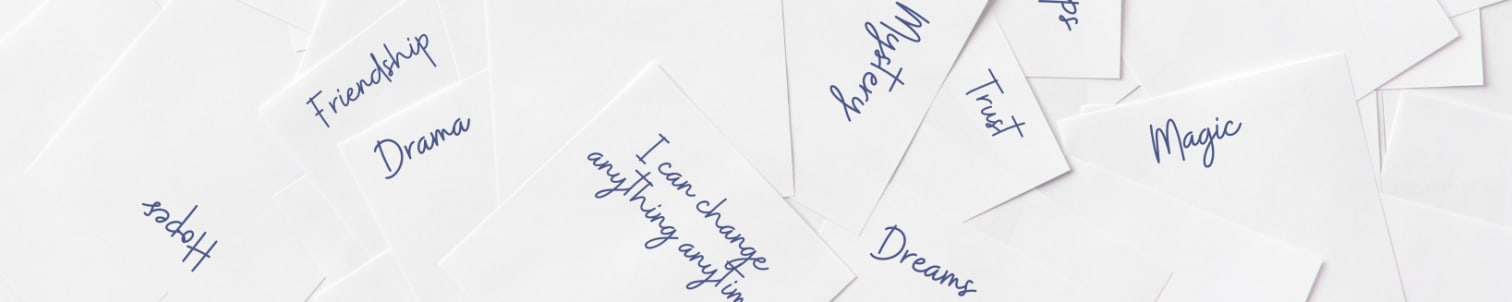 Friendship
Drama
Hopes
I can change
anything anytim
Mystery
Trust
ps
Magic
Dreams